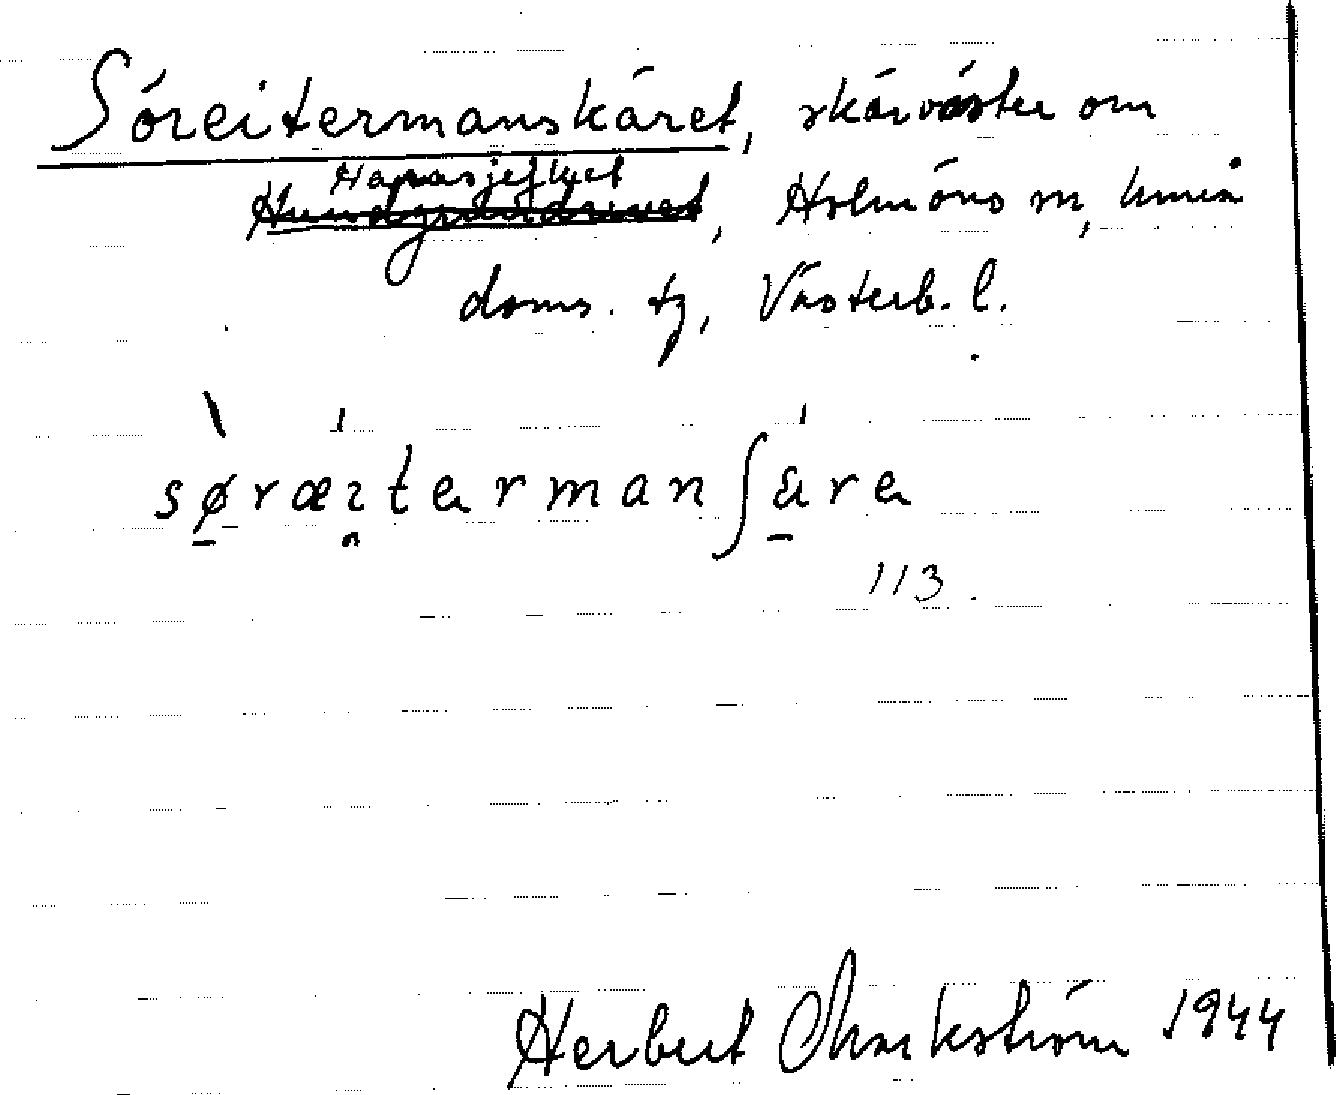 Söreitermanskäret, skär väster om
Holmöns sn, Umeå
doms. tg, Västerb. l.
søræıtermanʃäre
113.
Herbert Markström 1944